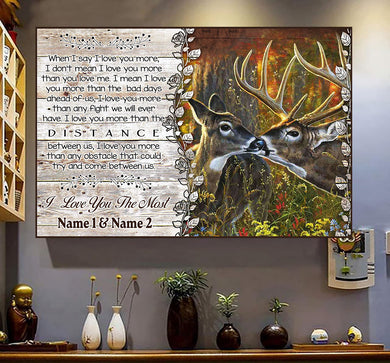 When I say I love you more,
I don't mean I love you more
than you love me. I mean I love
you more than the bad days
ahead of us, I love you more
than any fight we will ever
have. I love you more than the
DISTANCE
between us, I love you more
than any obstacle that could
try and come between us.
I Love You The Most
Name 1 & Name 2